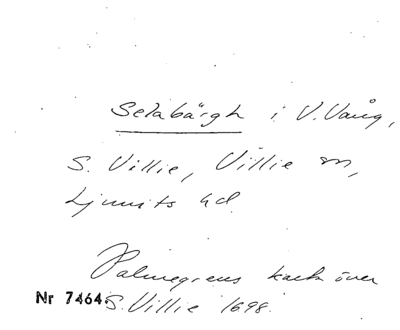 Selabärgh i V. Vång,
S. Villie, Villie sn,
Ljunits hd.
Palmegrens karta över
S. Villie 1698.
Nr 7464